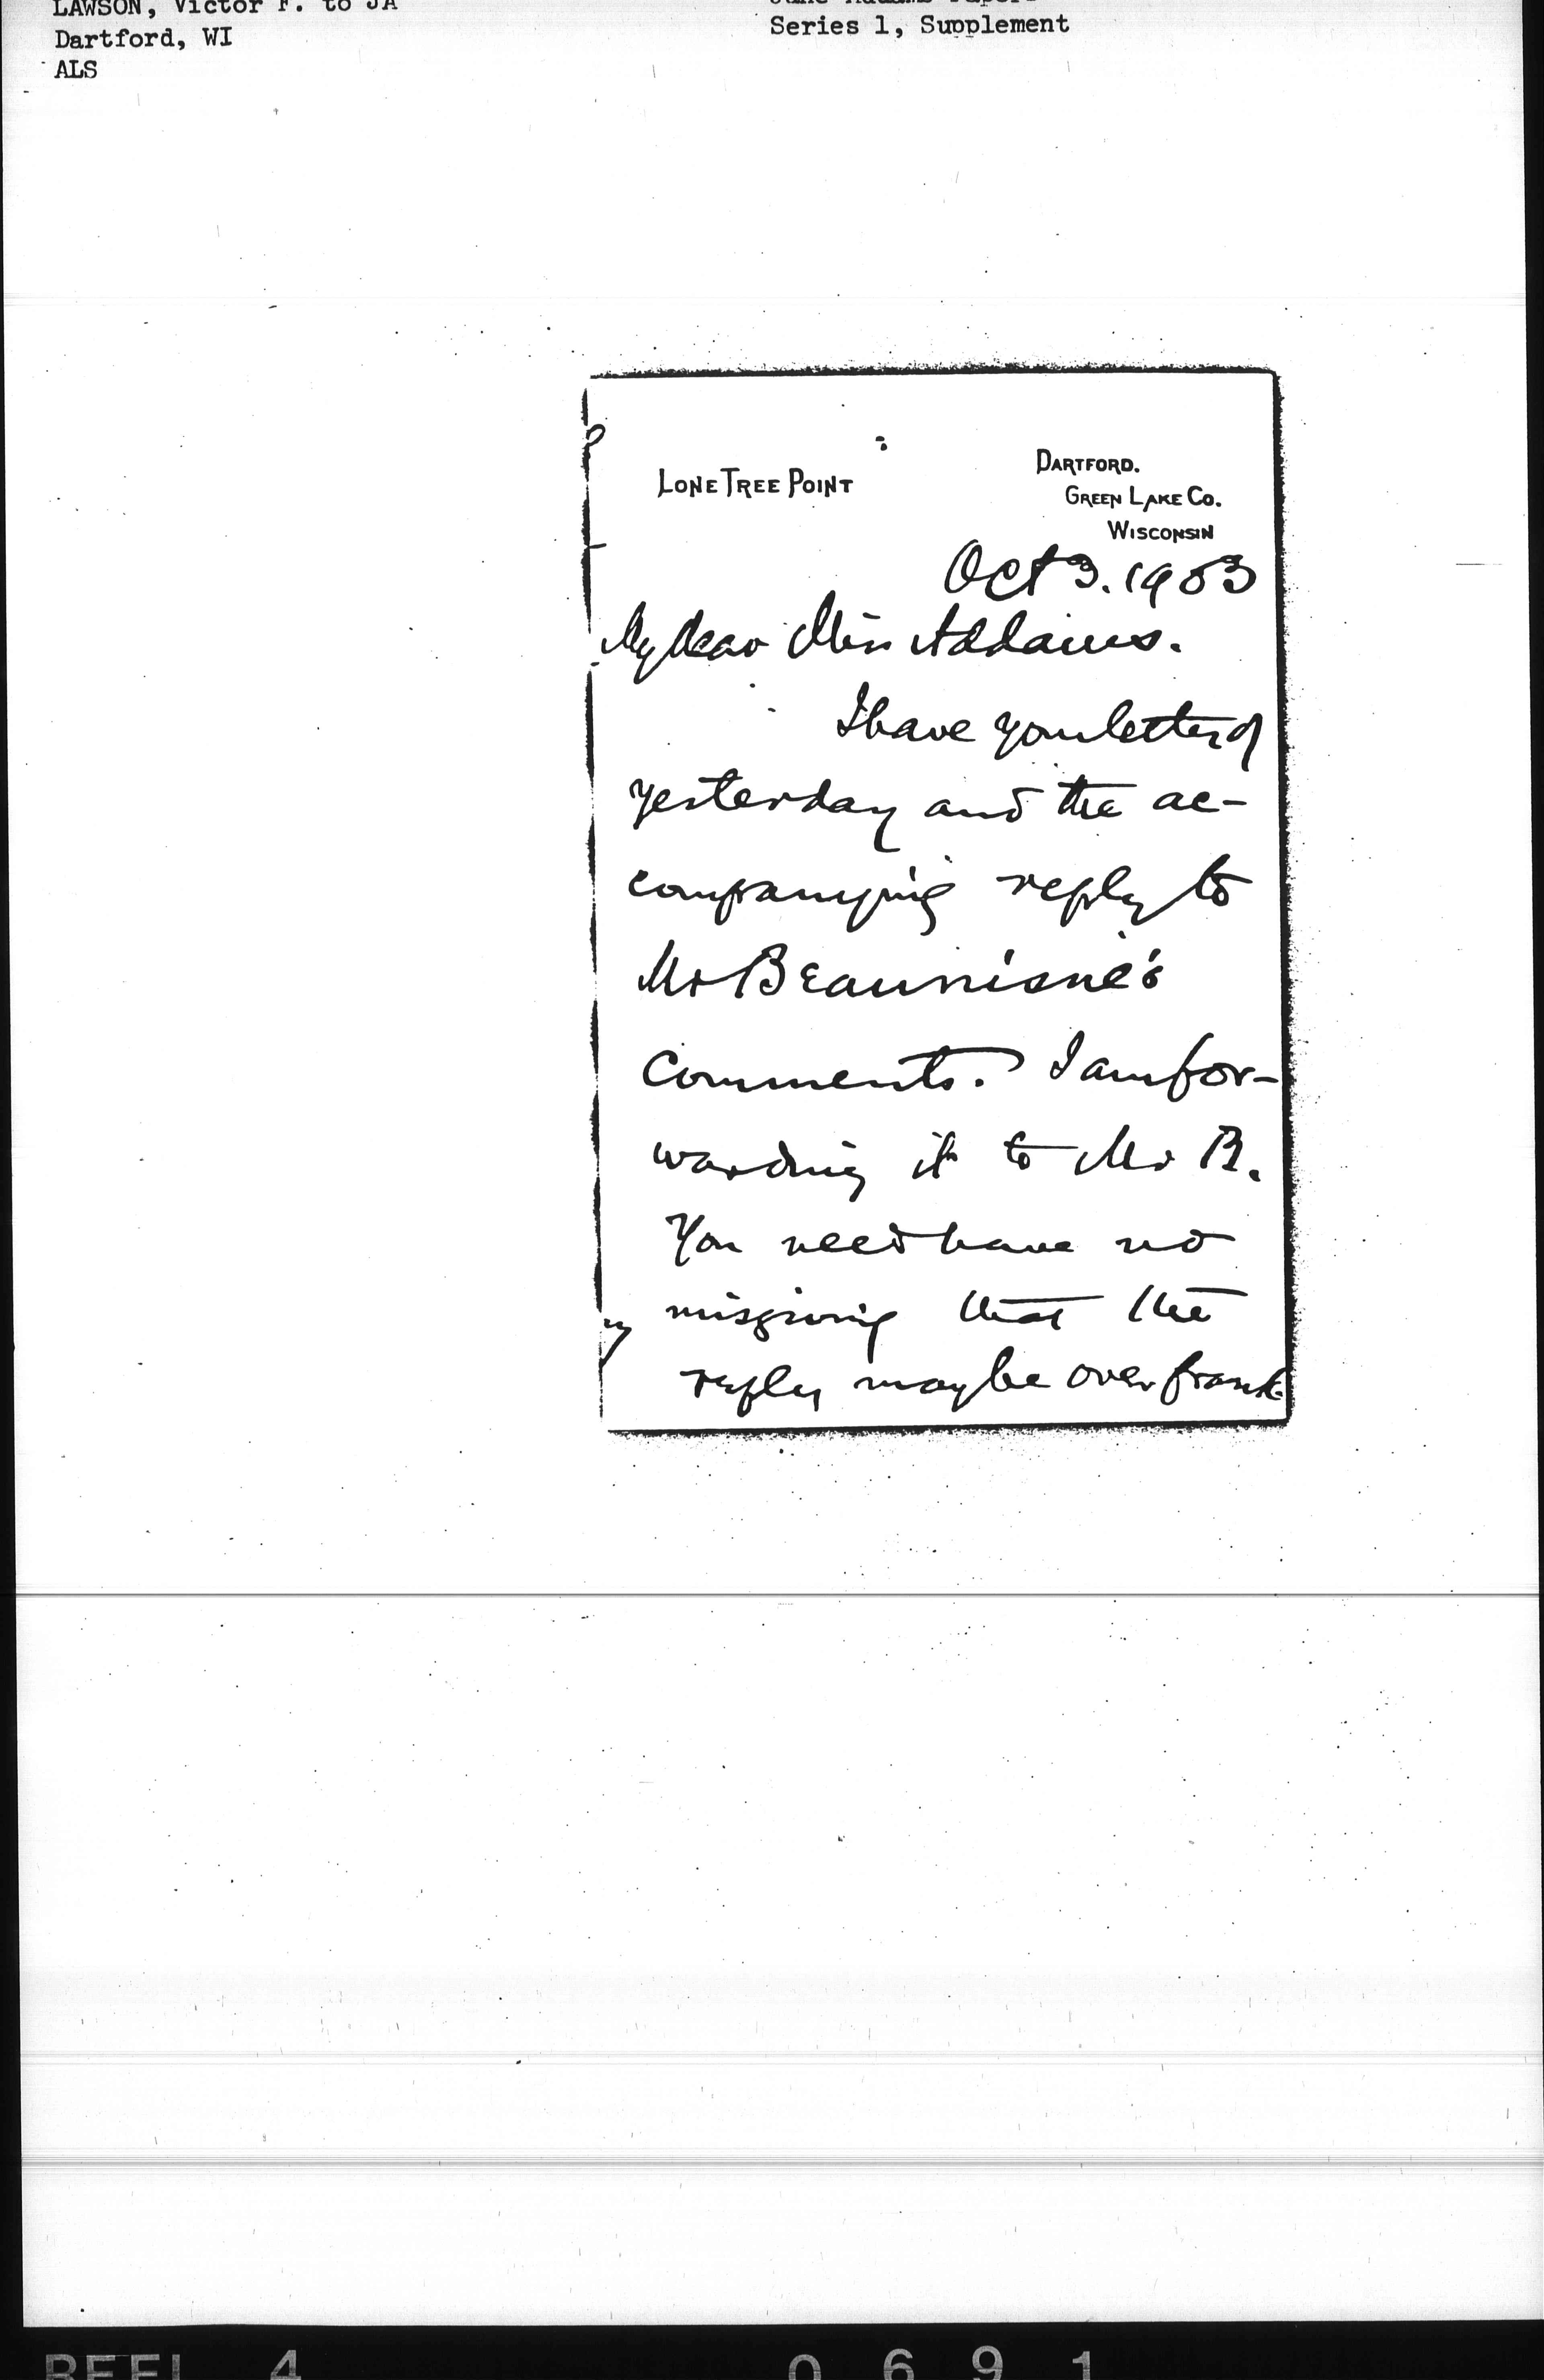 LAWSON, Victor F. to JA
Dartford, WI
ALS
Jane Addams Papers
Series 1, Supplement
LONE TREE POINT
DARTFORD.
GREEN LAKE CO.
WISCONSIN
Oct 3. 1903
My dear Miss Addams.
I have your letter of
yesterday and the ac-
companying reply to
Mr Beaunisne's
comments. I am for-
warding it to Mr B.
You need have no
misgiving that the
reply may be over frank.
REEL 4
0691